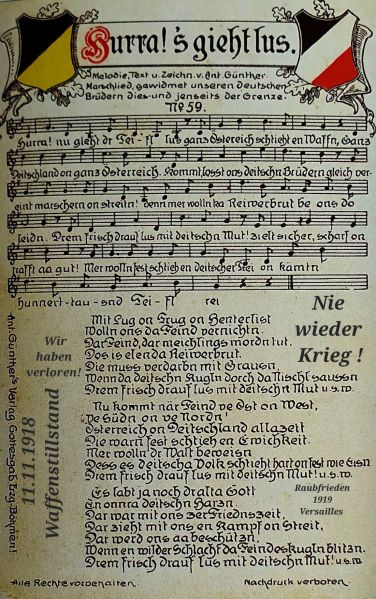 Hurra! 's gieht lus.
Melodie, Text u. Zeichn. v. Ant. Günther.
Marschlied, gewidmet unseren deutschen
Brüdern dies- und jenseits der Grenze.
No 59.
Hurra! nu gieht dr Tei-fl lus ganz Östereich schtieht en Waffn, Ganz
Deitschland on ganz Österreich. Kommt, losst ons deitschn Brüdern gleich ver-
eint marschern on streitn! Denn mer wolln ka Reiwerbrut be ons do
leidn. Drem frisch drauf lus mit deitschn Mut! zielt sicher, scharf on
trafft aa gut! Mer wolln fest schtieh en deitscher Trei on kämtn
hunnert-tau-snd Tei-fl rei
Mit Lug on Trug on Henterlist
Wolln ons da Feind vernichtn.
Dar Feind, dar meichlings mordn tut,
Dos is elenda Reiwerbrut.
Die muss verdarbn mit Grausn,
Wenn da deitschn Kugln dorch da Nischl saussn
Drem frisch drauf lus mit deitschn Mut u.s.w.
Nu kommt när Feind ve Ost on West,
Ve Südn on ve Nordn!
Österreich on Deitschland allazeit
Die warn fest schtieh en Ewichkeit.
Mer wolln dr Walt beweisn
Dess es deitscha Volk schtieht hart on fest wie Eisn
Drem frisch drauf lus mit deitschn Mut! u.s.w.
Es labt ja noch dr alta Gott
En onnra deitschn Harzn.
Dar war mit ons zer Friednszeit,
Dar zieht mit ons en Kampf on Streit,
Dar werd ons aa beschützn,
Wenn en wilder Schlacht da Feindeskugln blitzn.
Drem frisch drauf lus mit deitschn Mut! u.s.w.
Alle Rechte vorbehalten.
Nachdruck verboten.
Ant. Günther's Verlag, Gottesgab, Erzg. Böhmen!
Wir
haben
verloren!
11.11.1918
Waffenstillstand
Nie
wieder
Krieg !
Raubfrieden
1919
Versailles